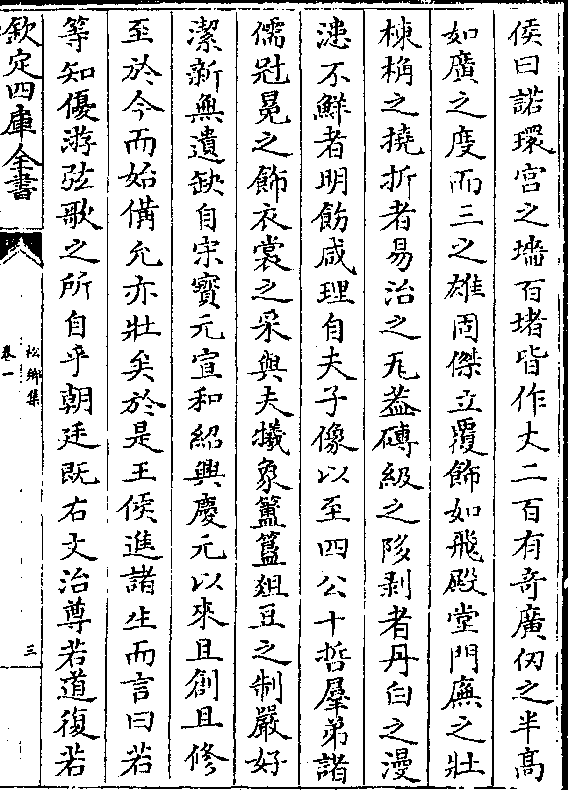 侯曰諾環宫之墻百堵皆作丈二百有奇廣仞之半髙
如廣之度而三之雄固傑立覆飾如飛殿堂門廡之壯
棟桷之撓折者易治之瓦葢磚級之陊剥者丹白之漫
漶不鮮者明飭咸理自夫子像以至四公十哲羣弟諸
儒冠冕之飾衣裳之采與夫犧象簠簋爼豆之制嚴好
潔新無遺缺自宋寳元宣和紹興慶元以來且創且修
至於今而始備允亦壯矣於是王侯進諸生而言曰若
等知優游弦歌之所自乎朝廷既右文治尊若道復若
欽定四庫全書
松鄉集
卷一
三